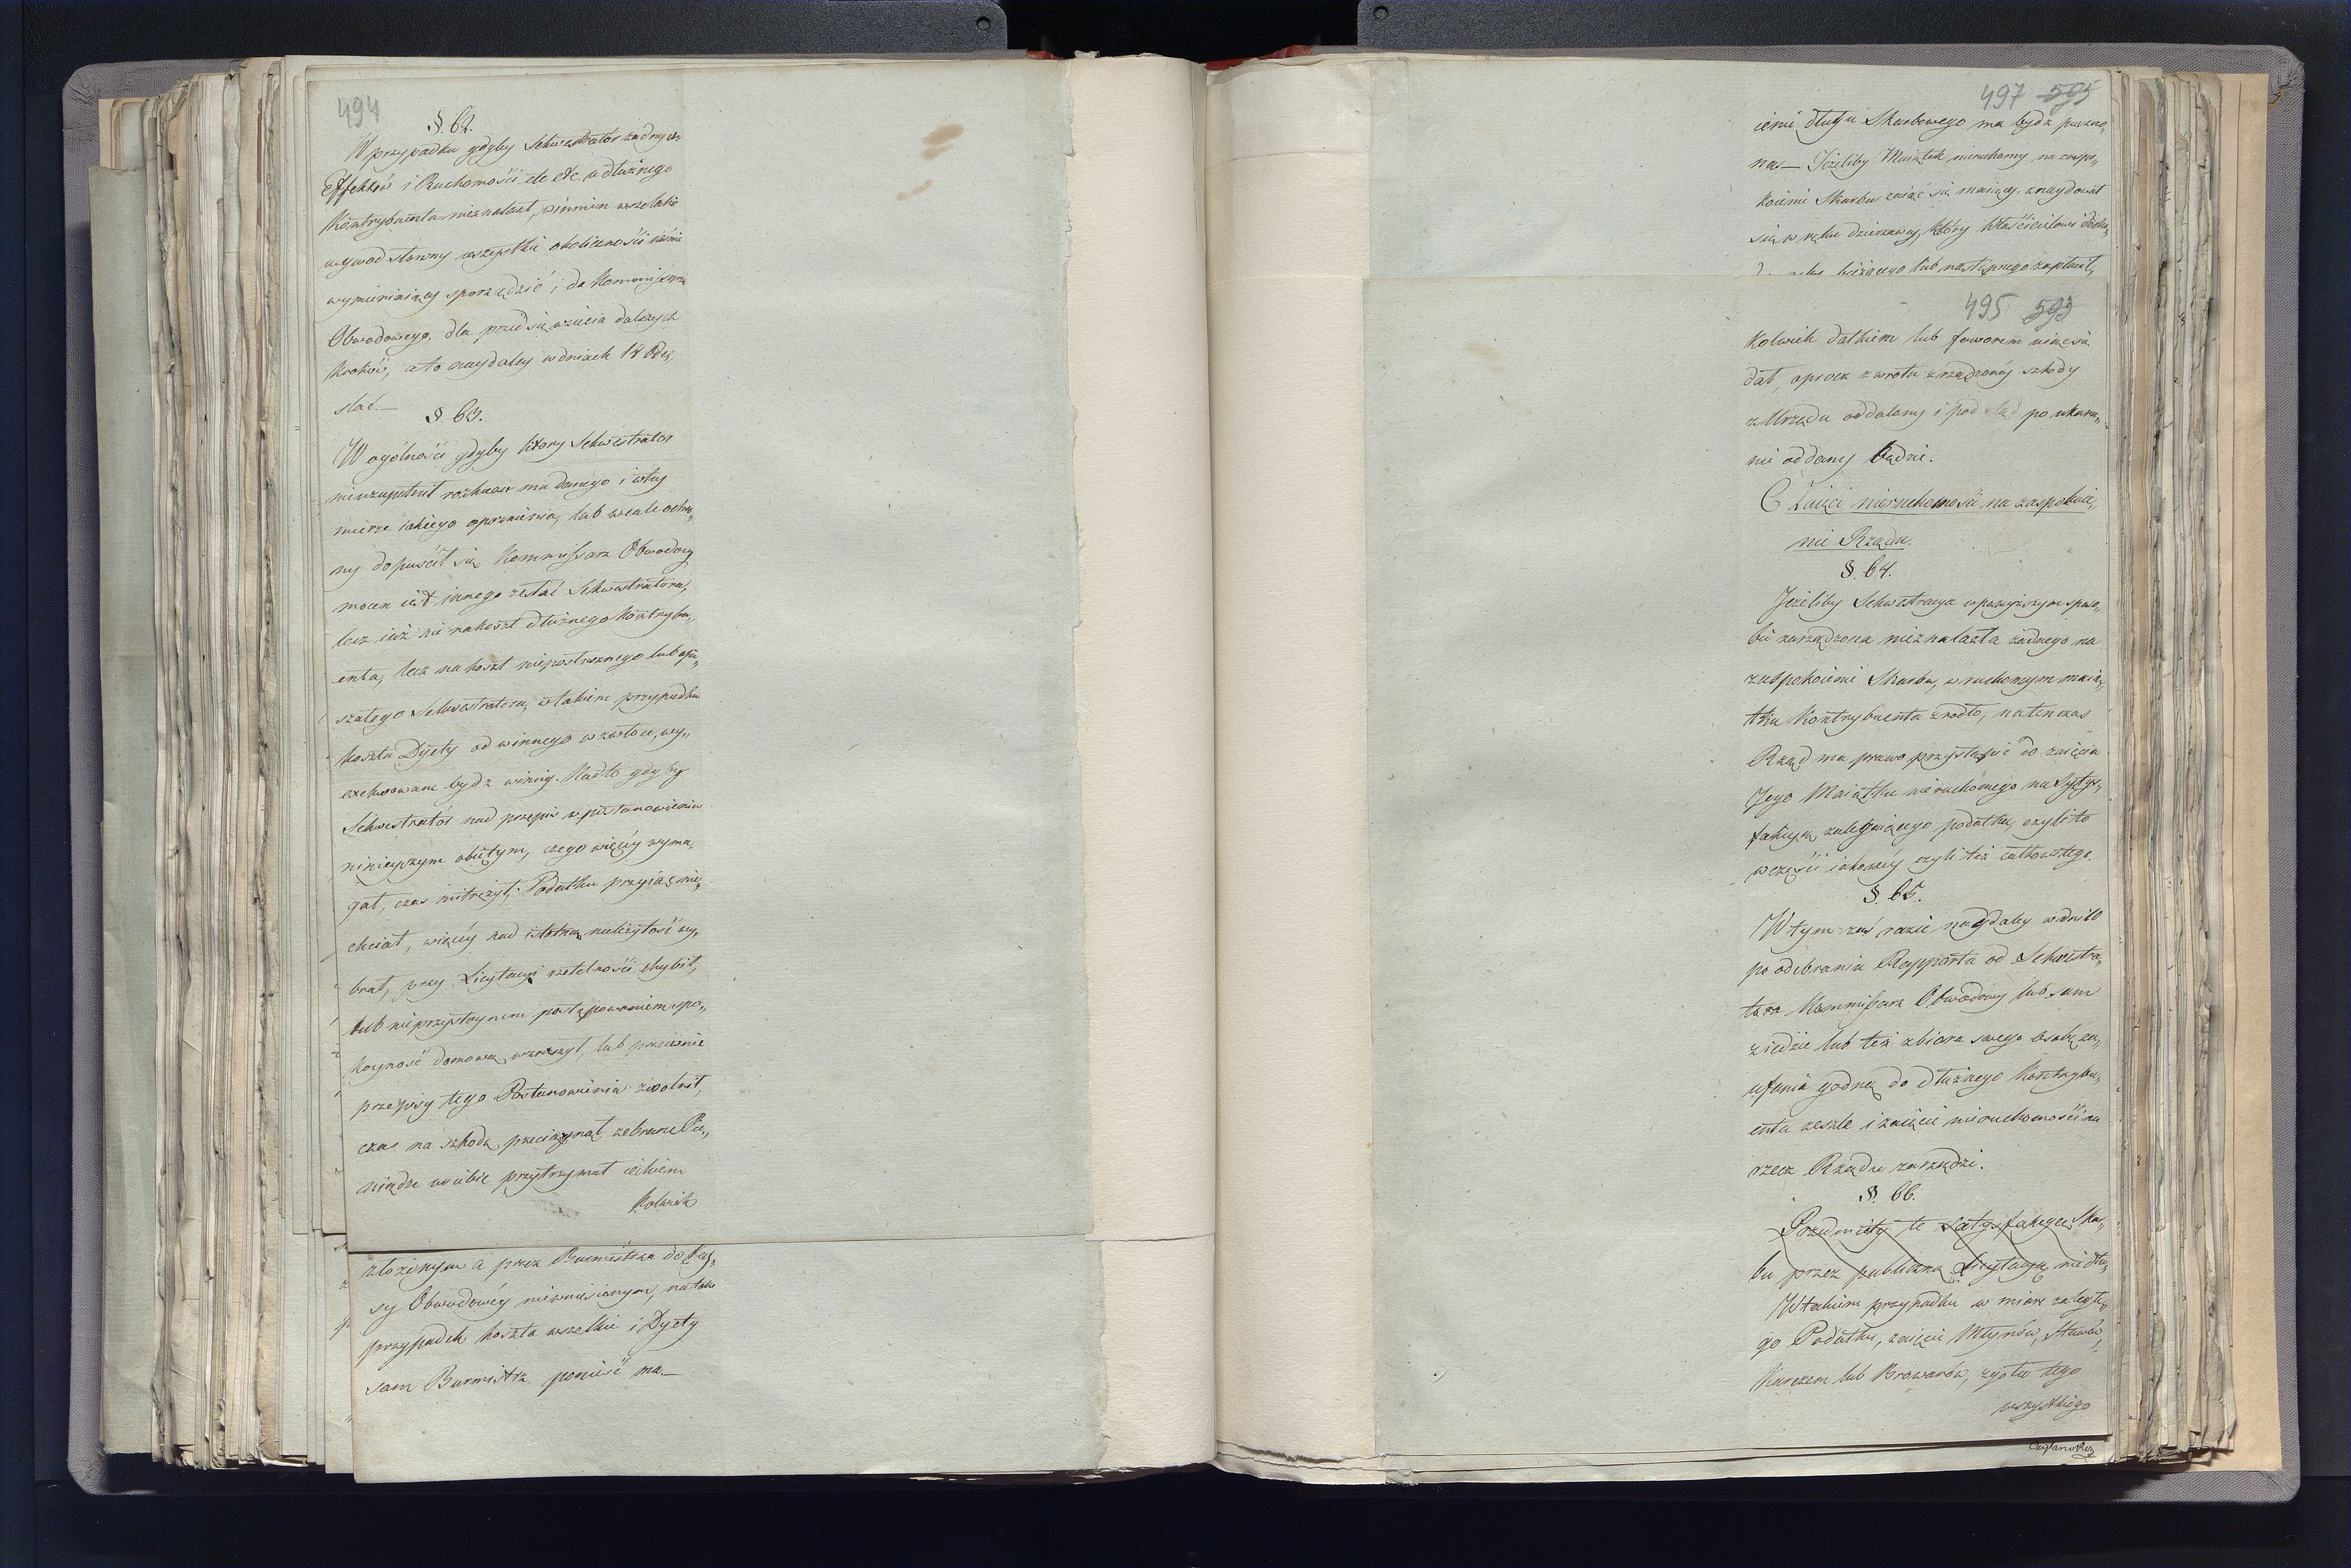 494
§. 62.
W przypadku gdyby Sekwestrator żadnych
Effektów i Ruchomości etc etc. u dłużnego
Kontrybuenta nieznalazł, winnien wszelako
wywod słowny wszystkie okoliczności iaśnie
wymieniaiący sporządzić i do Kommissarza
Obwodowego, dla przedsięwzięcia dalszych
Kroków, a to naydaley w dniach 14 Ode„
słać.—
§. 63.
W ogólności gdyby który Sekwestrator
nieuzupełnił rozkazu mu danego i w tey
mierze iakiego opoznienia, lub wcale odmo„
ny dopuścił się Kommissarz Obwodowy
mocen iest innego zesłać Sekwestratora,
lecz iuż nie na koszt dłużnego Kontrybu„
enta, lecz na koszt nieposłusznego lub opie„
szałego Sekwestratora, w takiem przypadku
koszta Dyety od winnego w zwłoce, wy„
exekwowane bydź winny. Nadto gdyby
Sekwestrator nad przepis w postanowieniu
ninieyszym obiętym, czego więcéy wyma„
gał, czas mitrężył, Podatku przyiąć nie„
chciał, więcéy nad istotną należytość wy„
brał, przy Licytacyi rzetelności chybił,
lub nieprzystoynem postępowaniem spo„
koyność domową wzruszył, lub przeciwnie
przepisy tego Postanowienia zwolnił,
czas na szkodę przeciągnął zebrane Pie„
niądze u siebie przytrzymał iakiem
kolwiek
złożonym a przez Burmistrza do Kas„
sy Obwodowéy niewniesionym, na ten
przypadek koszta wszelkie i Dyety
sam Burmistrz ponieść ma—
497 595
ienie długu Skarbowego ma bydź puszczo„
na.— Jeżeliby Maiątek nieruchomy na zaspo„
koienie Skarbu zaiąć się maiący, znaydował
się w ręku dzierzawcy, który Właścicielowi
bieżącego lub następnego zapłacił,
495 593
kolwiek datkiem lub faworem uiąć się
dał, oprócz zwrotu zrządzonéy szkody
z Urzędu oddalony i pod Sąd po ukara„
nie oddany będzie.
C Zaięci nieruchomości na zaspokoie„
nie Rządu.
§. 64.
Jeżeliby Sekwestracya w powyższym sposo„
bie zarządzona nieznalazła żadnego na
zaspokoienie Skarbu, w ruchomym maią„
tku Kontrybuenta źrodło, natenczas
Rząd ma prawo przystąpić do zaięcia
Jego Maiątku nieruchomego na Satys„
fakcyą zalegaiącego podatku, czyli to
w części iakowéy czyli też całkowitego.
§. 65.
W tym zaś razie naydaley w dni 10
po odebraniu Rapportu od Sekwestra„
tora Kommissarz Obwodowy lub sam
ziedzie lub też zbiera swego osobę za„
ufania godną do dłużnego Kontrybu„
enta zeszle i zaięcie nieruchomości na
rzecz Rządu zarządzi.
§. 66.
Przedmioty te Satysfakcyą Skar„
bu przez publiczną Licytacyą
W takim przypadku w miarę zaległe„
go Podatku, zaięcie Młynów, Stawów,
Karczem lub Browarów, zgoła tego
wszystkiego